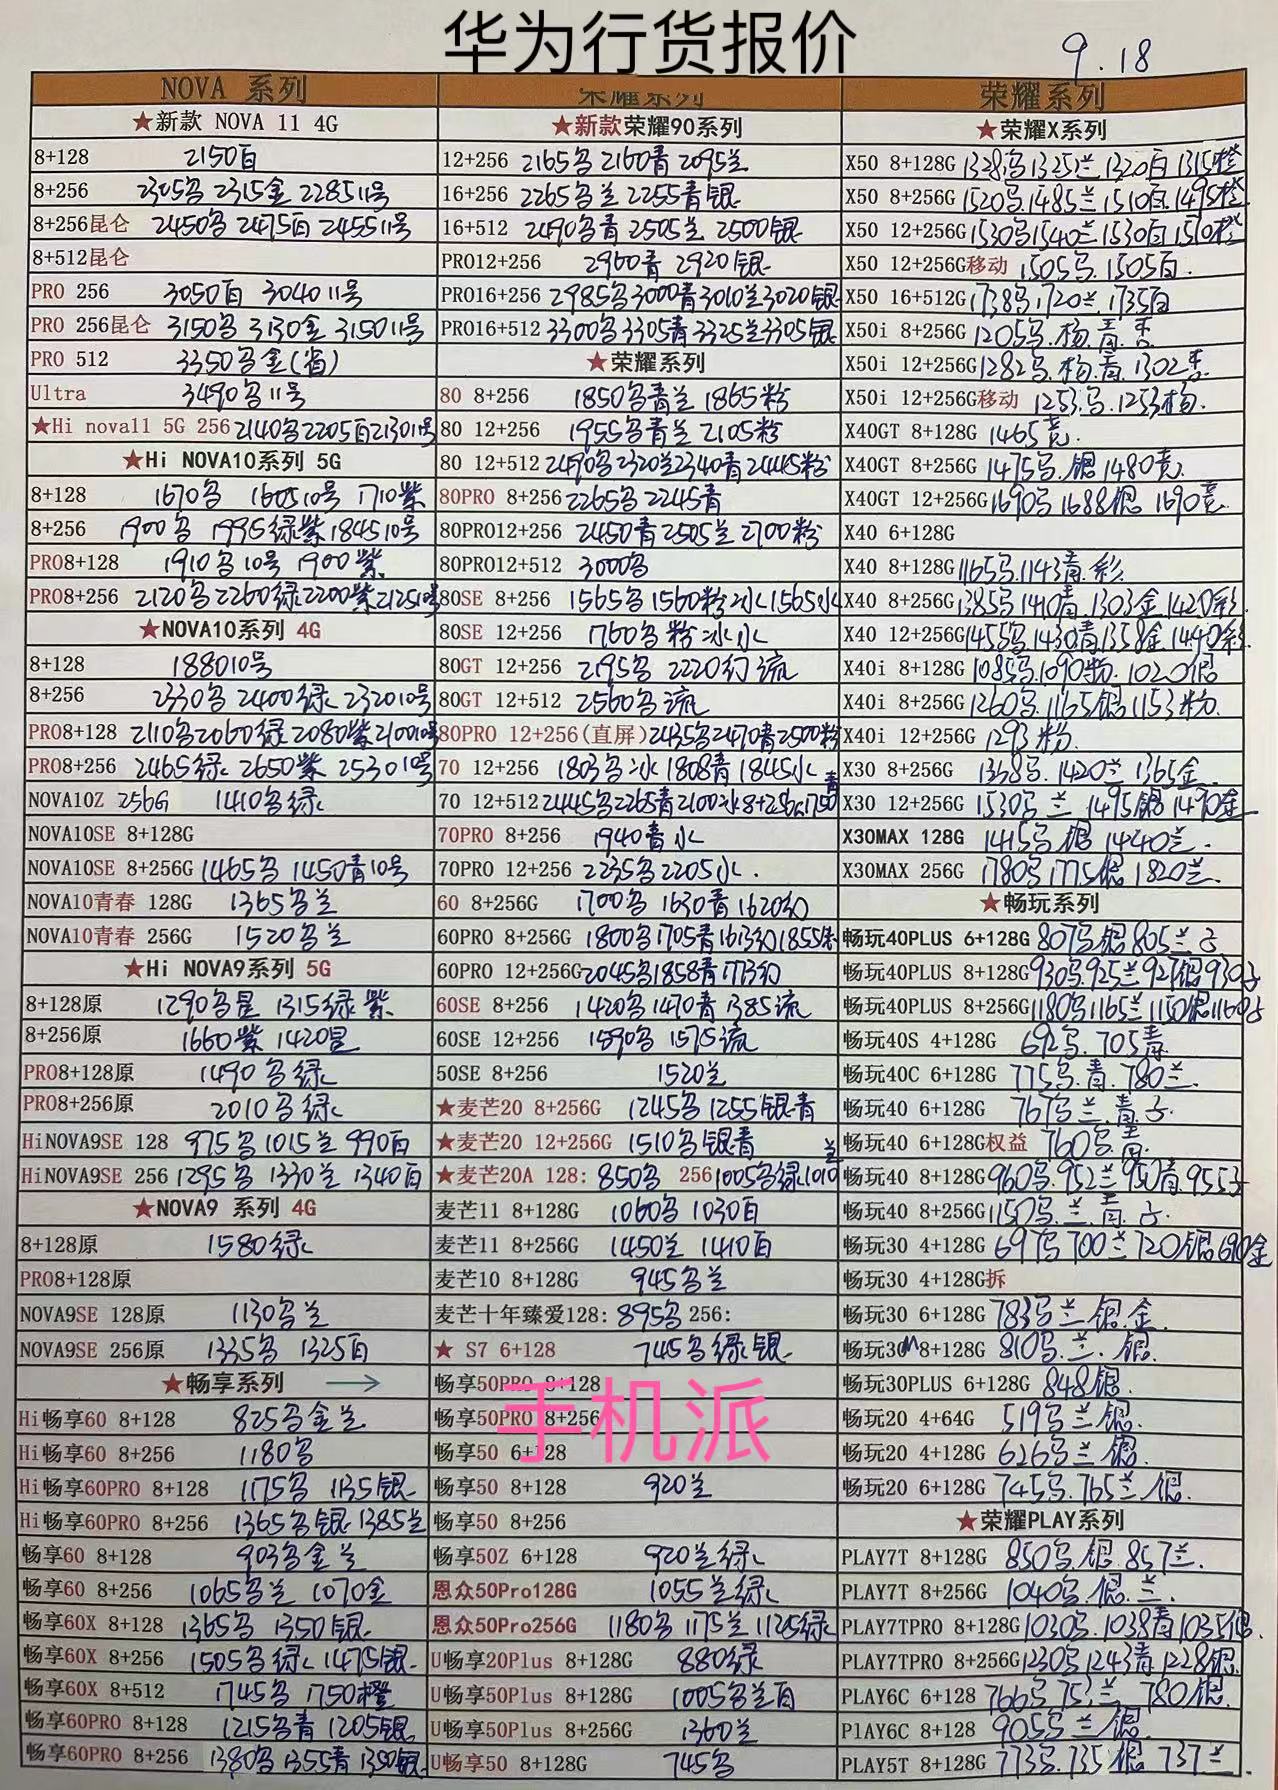 华为行货报价
9.18
NOVA 系列
★新款 NOVA 11 4G
8+128 2150白
8+256 2305名 2315金 2285 11号
8+256昆仑 2450名 2475白 2455 11号
8+512昆仑
PRO 256 3050白 3040 11号
PRO 256昆仑 3150名 3130金 3150 11号
PRO 512 3350名金(省)
Ultra 3490名11号
★Hi nova11 5G 256 2140名2205白2130 11号
★Hi NOVA10系列 5G
8+128 1670名 1605 10号 1710紫
8+256 1900名 1995绿紫1845 10号
PRO8+128 1910名10号 1900紫
PRO8+256 2120名2260绿2200紫2125 10号
★NOVA10系列 4G
8+128 1880 10号
8+256 2330名 2400绿 2320 10号
PRO8+128 2110名2060绿2080紫2100 10号
PRO8+256 2465绿 2650紫 2530 10号
NOVA10Z 256G 1410名绿
NOVA10SE 8+128G
NOVA10SE 8+256G 1465名 1450青10号
NOVA10青春 128G 1365名兰
NOVA10青春 256G 1520名兰
★Hi NOVA9系列 5G
8+128原 1290名星 1315绿紫
8+256原 1660紫 1420星
PRO8+128原 1490名绿
PRO8+256原 2010名绿
HiNOVA9SE 128 975名1015兰 990白
HiNOVA9SE 256 1295名 1330兰 1340白
★NOVA9 系列 4G
8+128原 1580绿
PRO8+128原
NOVA9SE 128原 1130名兰
NOVA9SE 256原 1335名 1325白
★畅享系列 →
Hi畅享60 8+128 825名金兰
Hi畅享60 8+256 1180名
Hi畅享60PRO 8+128 1175名 1135银
Hi畅享60PRO 8+256 1365名银1385兰
畅享60 8+128 903名金兰
畅享60 8+256 1065名兰 1070金
畅享60X 8+128 1365名 1350银
畅享60X 8+256 1505名绿 1475银
畅享60X 8+512 1745名 1750橙
畅享60PRO 8+128 1215名青 1205银
畅享60PRO 8+256 1380名1355青1350银
荣耀系列
★新款荣耀90系列
12+256 2165名 2160青 2095兰
16+256 2265名兰 2255青银
16+512 2490名青 2505兰 2500银
PRO12+256 2960青 2920银
PRO16+256 2985名3000青3010兰3020银
PRO16+512 3300名3305青3325兰3305银
★荣耀系列
80 8+256 1850名青兰 1865粉
80 12+256 1955名青兰 2105粉
80 12+512 2490名2320兰2340青2445粉
80PRO 8+256 2265名 2245青
80PRO12+256 2450青2505兰2700粉
80PRO12+512 3000名
80SE 8+256 1565名1560粉冰1565水
80SE 12+256 1760名粉冰水
80GT 12+256 2195名 2220幻流
80GT 12+512 2560名流
80PRO 12+256(直屏)2435名2470青2500粉
70 12+256 1803名冰1808青1845水
70 12+512 2445名2265青2100冰8+256G1750青
70PRO 8+256 1940青水
70PRO 12+256 2235名2205水.
60 8+256G 1700名 1630青1620幻
60PRO 8+256G 1800名1705青1613幻1855
60PRO 12+256G 2045名1858青1773幻
60SE 8+256 1420名1470青1385流
60SE 12+256 1590名 1575流
50SE 8+256 1520兰
★麦芒20 8+256G 1245名1255银青
★麦芒20 12+256G 1510名银青
★麦芒20A 128: 850名 256 1005名绿1010兰
麦芒11 8+128G 1060名 1030白
麦芒11 8+256G 1450兰 1410白
麦芒10 8+128G 945名兰
麦芒十年臻爱128: 895名 256:
★ S7 6+128 745名绿银
畅享50PRO 8+128
手机派
畅享50PRO 8+256
畅享50 6+128
畅享50 8+128 920兰
畅享50 8+256
畅享50Z 6+128 920兰绿
恩众50Pro128G 1055兰绿
恩众50Pro256G 1180名1175兰1125绿
U畅享20Plus 8+128G 880绿
U畅享50Plus 8+128G 1005名兰白
U畅享50Plus 8+256G 1360兰
U畅享50 8+128G 745名
荣耀系列
★荣耀X系列
X50 8+128G 1328名1325兰1320白1315橙
X50 8+256G 1520名1485兰1510白1495橙
X50 12+256G 1530名1540兰1530白1510橙
X50 12+256G移动 1505名.1505白.
X50 16+512G 1738名1720兰.1735白
X50i 8+256G 1205名.杨.青.杏
X50i 12+256G 1282名.杨.青.1302杏
X50i 12+256G移动 1253名.1253杨.
X40GT 8+128G 1465竞.
X40GT 8+256G 1475名.银1480竞.
X40GT 12+256G 1690名1688银1690竞.
X40 6+128G
X40 8+128G 1165名.1143青.彩
X40 8+256G 1385名1410青.1303金1420彩.
X40 12+256G 1455名1430青1358金.1440彩.
X40i 8+128G 1085名1090粉.1020银
X40i 8+256G 1260名.1165银1153粉.
X40i 12+256G 1293粉.
X30 8+256G 1338名.1420兰1365金.
X30 12+256G 1530名 兰 1495银1490金
X30MAX 128G 1415名 银 1440兰.
X30MAX 256G 1780名1775银1820兰.
★畅玩系列
畅玩40PLUS 6+128G 807名银805兰子
畅玩40PLUS 8+128G 930名925兰927银930子
畅玩40PLUS 8+256G 1180名1165兰1150银1160子
畅玩40S 4+128G 692名.705青.
畅玩40C 6+128G 775名.青.780兰.
畅玩40 6+128G 767名兰.青.子.
畅玩40 6+128G权益 760名.青.
畅玩40 8+128G 960名.952兰950青.955子
畅玩40 8+256G 1150名.兰.青.子.
畅玩30 4+128G 697名700兰720银690金
畅玩30 4+128G拆
畅玩30 6+128G 783名兰 银 金.
畅玩30M 8+128G 810名.兰.银.
畅玩30PLUS 6+128G 848银.
畅玩20 4+64G 519名兰银.
畅玩20 4+128G 626名兰.银.
畅玩20 6+128G 745名.765兰.银.
★荣耀PLAY系列
PLAY7T 8+128G 850名.银 857兰.
PLAY7T 8+256G 1040名.银.兰.
PLAY7TPRO 8+128G 1030名.1038青1035银.
PLAY7TPRO 8+256G 1230名1243青1228银.
PLAY6C 6+128 766名753兰 780银.
PlAY6C 8+128 905名兰银.
PLAY5T 8+128G 773名.735银 737兰.